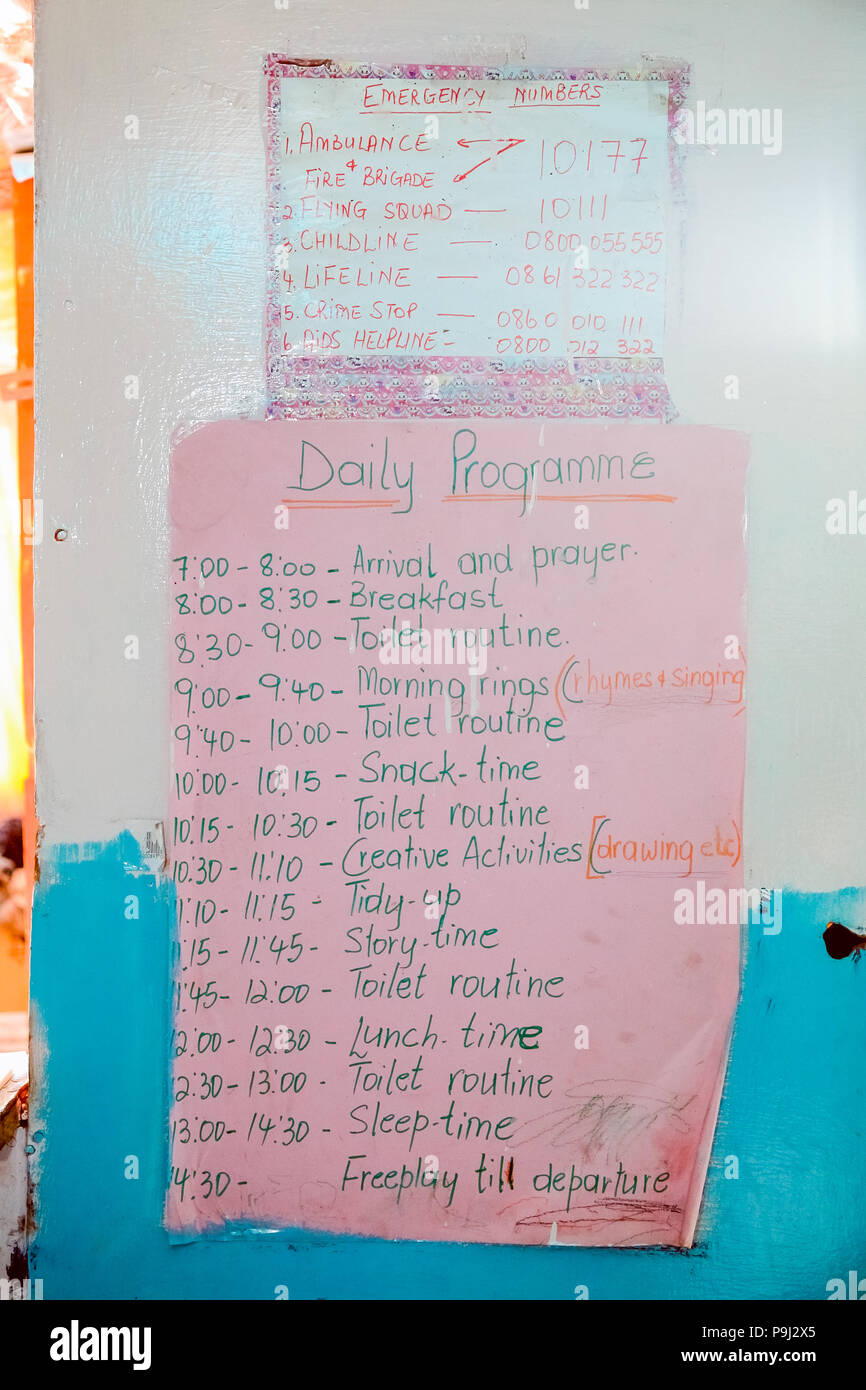 EMERGENCY NUMBERS
1. AMBULANCE & FIRE BRIGADE 10177
2. FLYING SQUAD — 10111
3. CHILDLINE — 0800 055 555
4. LIFELINE — 0861 322 322
5. CRIME STOP — 0860 010 111
6. AIDS HELPLINE - 0800 012 322
Daily Programme
7:00 - 8:00 - Arrival and prayer.
8:00 - 8:30 - Breakfast
8:30 - 9:00 - Toilet routine.
9:00 - 9:40 - Morning rings (rhymes & singing)
9:40 - 10:00 - Toilet routine
10:00 - 10:15 - Snack-time
10:15 - 10:30 - Toilet routine
10:30 - 11:10 - Creative Activities [(drawing etc)
11:10 - 11:15 - Tidy-up
11:15 - 11:45 - Story-time
11:45 - 12:00 - Toilet routine
12:00 - 12:30 - Lunch-time
12:30 - 13:00 - Toilet routine
13:00 - 14:30 - Sleep-time
14:30 - Freeplay till departure
alamy
Image ID: P9J2X5
www.alamy.com